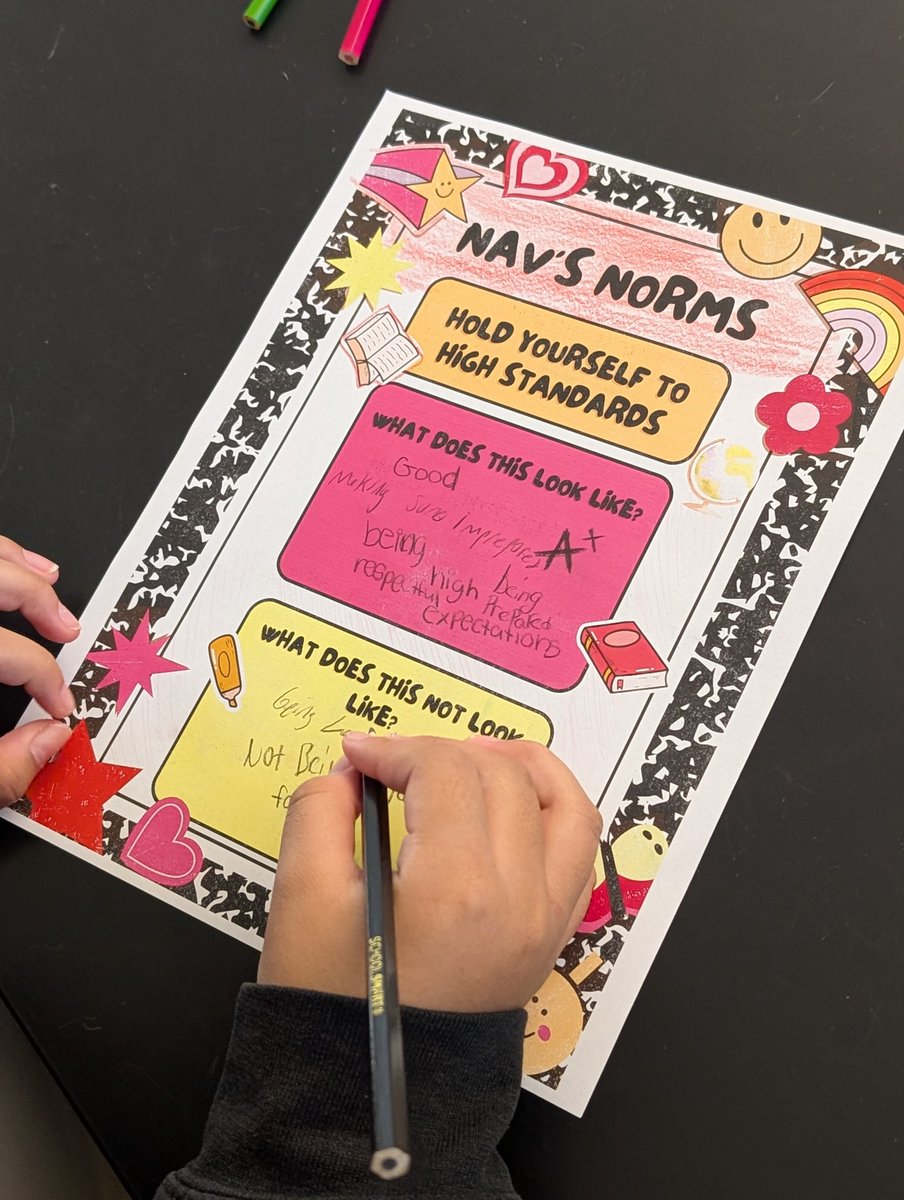 NAV'S NORMS
HOLD YOURSELF TO
HIGH STANDARDS
WHAT DOES THIS LOOK LIKE?
Good
Making Sure
A+
being being
respectful high Prepared
expectations
WHAT DOES THIS NOT LOOK
LIKE?
being
Not Bein
SCHOOL SMART